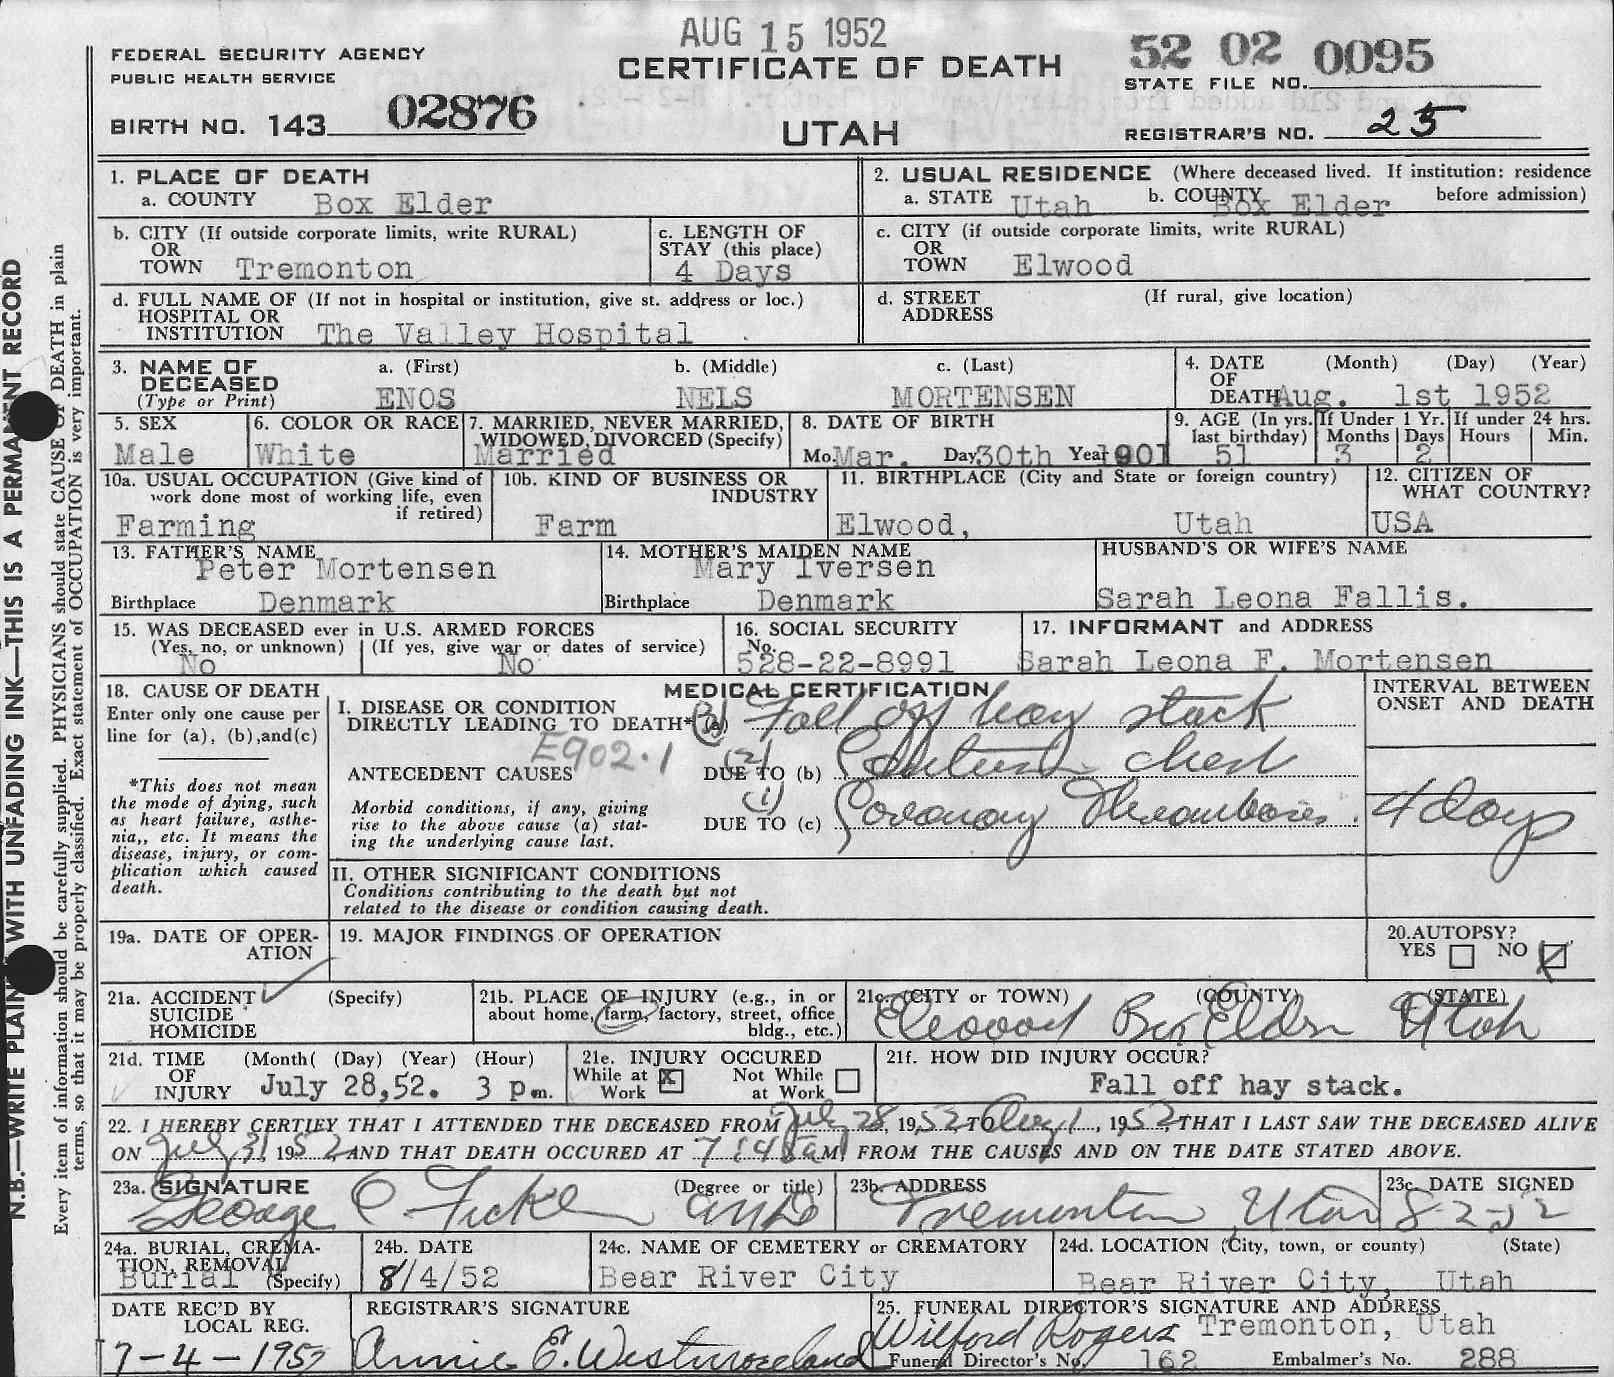 AUG 15 1952
FEDERAL SECURITY AGENCY
PUBLIC HEALTH SERVICE
CERTIFICATE OF DEATH
52 02 0095
STATE FILE NO.
BIRTH NO. 143 02876
UTAH
REGISTRAR'S NO. 25
N.B.—WRITE PLAINLY WITH UNFADING INK—THIS IS A PERMANENT RECORD
Every item of information should be carefully supplied. PHYSICIANS should state CAUSE OF DEATH in plain
terms, so that it may be properly classified. Exact statement of OCCUPATION is very important.
1. PLACE OF DEATH
a. COUNTY Box Elder
2. USUAL RESIDENCE (Where deceased lived. If institution: residence before admission)
a. STATE Utah b. COUNTY Box Elder
b. CITY (If outside corporate limits, write RURAL)
OR
TOWN Tremonton
c. LENGTH OF
STAY (this place)
4 Days
c. CITY (if outside corporate limits, write RURAL)
OR
TOWN Elwood
d. FULL NAME OF (If not in hospital or institution, give st. address or loc.)
HOSPITAL OR
INSTITUTION The Valley Hospital
d. STREET (If rural, give location)
ADDRESS
3. NAME OF DECEASED
(Type or Print)
a. (First) b. (Middle) c. (Last)
ENOS NELS MORTENSEN
4. DATE (Month) (Day) (Year)
OF
DEATH Aug. 1st 1952
5. SEX
Male
6. COLOR OR RACE
White
7. MARRIED, NEVER MARRIED,
WIDOWED, DIVORCED (Specify)
Married
8. DATE OF BIRTH
Mo. Mar. Day 30th Year 1901
9. AGE (In yrs. last birthday)
51
If Under 1 Yr.
Months Days
3 2
If under 24 hrs.
Hours Min.
10a. USUAL OCCUPATION (Give kind of
work done most of working life, even
if retired)
Farming
10b. KIND OF BUSINESS OR
INDUSTRY
Farm
11. BIRTHPLACE (City and State or foreign country)
Elwood, Utah
12. CITIZEN OF
WHAT COUNTRY?
USA
13. FATHER'S NAME
Peter Mortensen
Birthplace Denmark
14. MOTHER'S MAIDEN NAME
Mary Iversen
Birthplace Denmark
HUSBAND'S OR WIFE'S NAME
Sarah Leona Fallis.
15. WAS DECEASED ever in U.S. ARMED FORCES
(Yes, no, or unknown) (If yes, give war or dates of service)
No No
16. SOCIAL SECURITY
No.
528-22-8991
17. INFORMANT and ADDRESS
Sarah Leona F. Mortensen
18. CAUSE OF DEATH
Enter only one cause per
line for (a), (b), and (c)
*This does not mean
the mode of dying, such
as heart failure, asthe-
nia,, etc. It means the
disease, injury, or com-
plication which caused
death.
MEDICAL CERTIFICATION
I. DISEASE OR CONDITION
DIRECTLY LEADING TO DEATH* (a) (3) Fall off hay stack
E902.1
ANTECEDENT CAUSES
DUE TO (b) (2) Contusion chest
Morbid conditions, if any, giving
rise to the above cause (a) stat-
ing the underlying cause last.
DUE TO (c) (1) Coronary Thrombosis.
INTERVAL BETWEEN
ONSET AND DEATH
4 days
II. OTHER SIGNIFICANT CONDITIONS
Conditions contributing to the death but not
related to the disease or condition causing death.
19a. DATE OF OPER-
ATION
19. MAJOR FINDINGS OF OPERATION
20. AUTOPSY?
YES NO
21a. ACCIDENT (Specify)
SUICIDE
HOMICIDE
21b. PLACE OF INJURY (e.g., in or
about home, farm, factory, street, office
bldg., etc.)
21c. (CITY or TOWN) (COUNTY) (STATE)
Elwood Box Elder Utah
21d. TIME (Month( (Day) (Year) (Hour)
OF
INJURY July 28,52. 3 p.m.
21e. INJURY OCCURED
While at Work X Not While at Work
21f. HOW DID INJURY OCCUR?
Fall off hay stack.
22. I HEREBY CERTIFY THAT I ATTENDED THE DECEASED FROM July 28, 1952 TO Aug 1, 1952 THAT I LAST SAW THE DECEASED ALIVE
ON July 31, 1952 AND THAT DEATH OCCURED AT 7:48 a M, FROM THE CAUSES AND ON THE DATE STATED ABOVE.
23a. SIGNATURE (Degree or title)
George C. Ficke
23b. ADDRESS
Tremonton, Utah
23c. DATE SIGNED
8-2-52
24a. BURIAL, CREMA-
TION, REMOVAL
Burial (Specify)
24b. DATE
8/4/52
24c. NAME OF CEMETERY or CREMATORY
Bear River City
24d. LOCATION (City, town, or county) (State)
Bear River City, Utah
DATE REC'D BY
LOCAL REG.
7-4-1952
REGISTRAR'S SIGNATURE
Annie E. Westmoreland
25. FUNERAL DIRECTOR'S SIGNATURE AND ADDRESS
Wilford Rogers Tremonton, Utah
Funeral Director's No. 162 Embalmer's No. 288